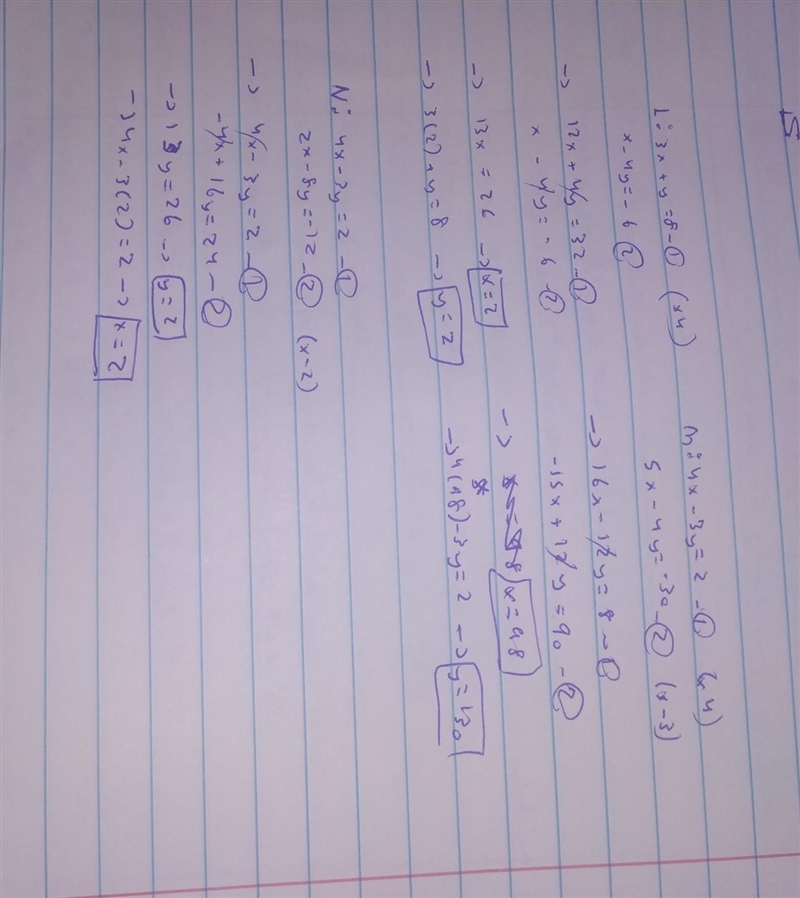 5
L: 3x + y = 8 - ① (x4)
x - 4y = -6 - ②
-> 12x + 4y = 32 - ①
x - 4y = -6 ②
-> 13x = 26 -> x = 2
-> 3(2) + y = 8 -> y = 2
M: 4x - 3y = 2 - ① (x4)
5x - 4y = -30 - ② (x-3)
-> 16x - 12y = 8 - ①
-15x + 12y = 90 - ②
-> x = 98
-> 4(98) - 3y = 2 -> y = 130
N: 4x - 3y = 2 - ①
2x - 8y = -12 - ② (x-2)
-> 4x - 3y = 2 - ①
-4x + 16y = 24 - ②
-> 13y = 26 -> y = 2
-> 4x - 3(2) = 2 -> 2 = x